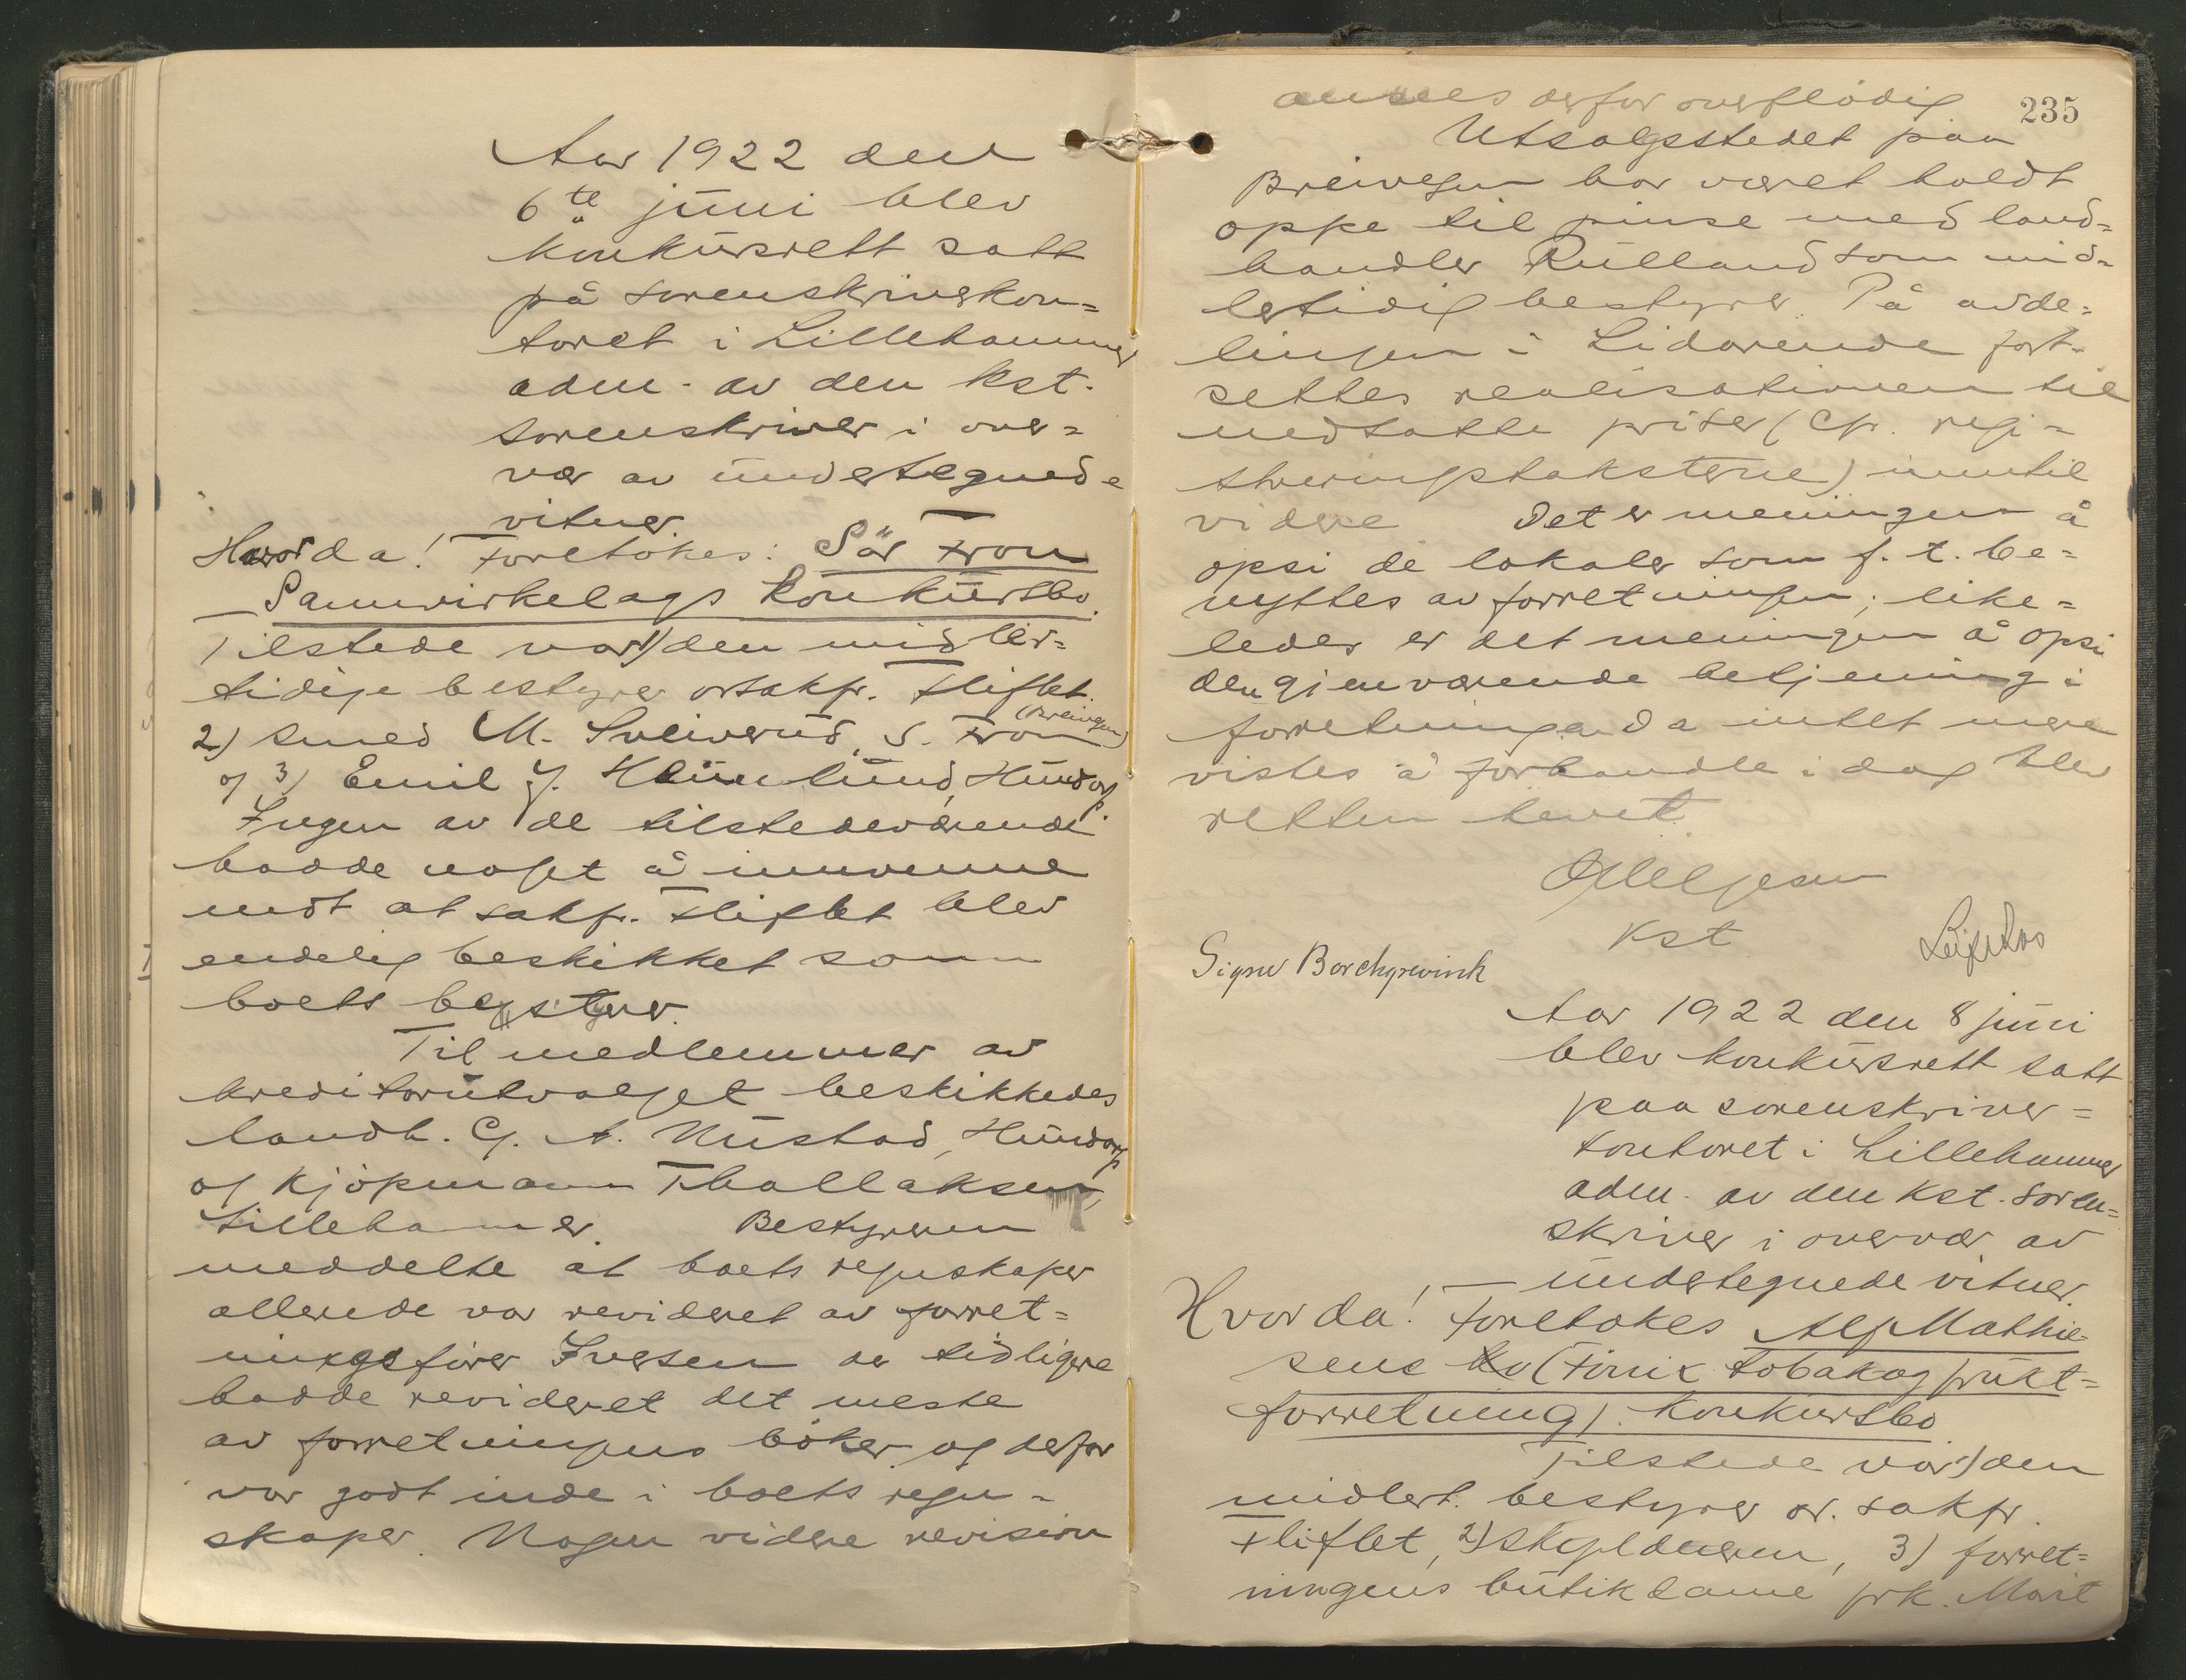 Aar 1922 den
6te juni blev
konkursrett satt
på sorenskriverkon=
toret i Lillehammer
adm. av den kst.
sorenskriver i over=
vær av undertegnede
vitner
Hvor da! Foretokes: Sør Fron
Samvirkelags Konkursbo.
Tilstede var 1) den midler=
tidige bestyrer o.r.sakfr. Fliflet.
2) smed M. Sveiverud, S. Fron
og 3) Emil J. Haumlund, Hundorp
Ingen av de tilstedeværende
hadde noget å innvenne
mot at sakfr. Fliflet blev
endelig beskikket som
boets bestyrer.
Til medlemmer av
kreditorutvalget beskikkedes
landh. G. A. Nustad, Hundorp
og kjøpmann Thallaksen,
Lillehammer. Bestyreren
meddelte at boets regnskaper
allerede var revideret av forret=
ningsfører Iversen der tidligere
hadde revideret det meste
av forretningens bøker og derfor
var godt inde i boets regn=
skaper. Nogen videre revision
235
ansees derfor overflødig
Utsalgsstedet paa
Breivegen har været holdt
oppe til pinse med land=
handler Rulland som mid=
lertidig bestyrer. På avde=
lingen i Lidarende fort=
settes realisationen til
nedsatte priser (cfr. regi=
streringstakstene) inntil
videre Det er meningen å
opsi de lokaler som f. t. be=
nyttes av forretningen; like=
ledes er det meningen å opsi
den gjenværende betjening i
forretningen. Da intet mere
vistes å forhandle i dag blev
retten hevet.
kst
Signe Borchgrevink
Aar 1922 den 8 juni
blev konkursrett satt
paa sorenskriver=
kontoret i Lillehammer
adm. av den kst. soren=
skriver i overvær av
undertegnede vitner.
Hvor da! Foretokes Alf Mathie=
sens bo (Fønix tobak og frukt=
forretning). Konkursbo
Tilstede var 1) den
midlert. bestyrer or. sakfr.
Fliflet, 2) skyldneren, 3) forret=
ningens butikdame frk. Marit